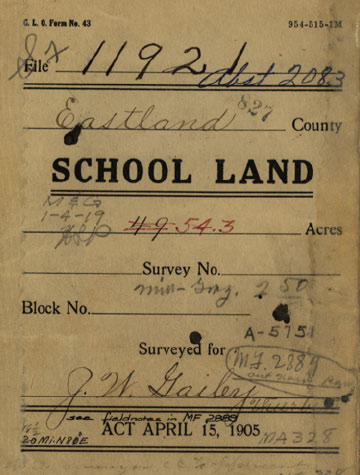 G. L. O. Form No. 43 954-515-1M
File 11921
Abst 2083
Eastland 827 County
SCHOOL LAND
M & G
1-4-19
49 54.3 Acres
Survey No.
min-Grz. 2 50
Block No.
A-5751
Surveyed for M.F. 2889
J. W. Gailey
see fieldnotes in MF 2889
ACT APRIL 15, 1905
20 Mi. N80E MA 328